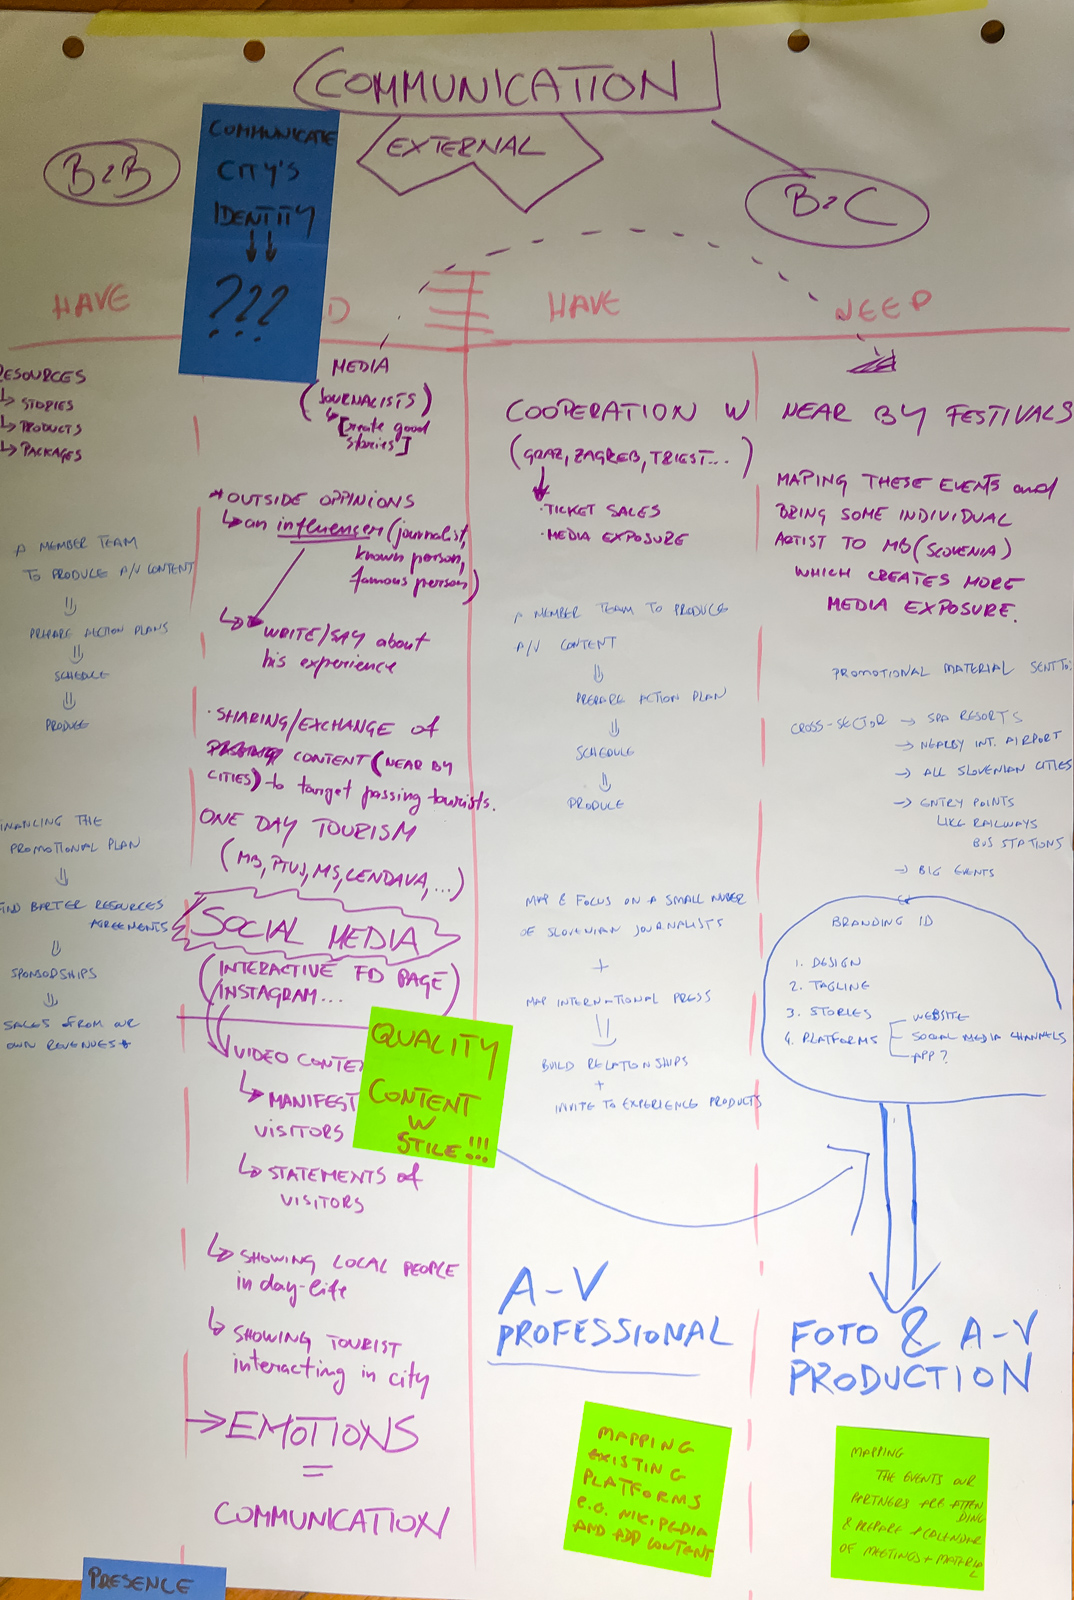 COMMUNICATION
EXTERNAL
B2B
B2C
COMMUNICATE
CITY'S
IDENTITY
???
HAVE
D
HAVE
NEED
RESOURCES
STORIES
PRODUCTS
PACKAGES
A MEMBER TEAM
TO PRODUCE A/V CONTENT
PREPARE ACTION PLANS
SCHEDULE
PRODUCE
FINANCING THE
PROMOTIONAL PLAN
FIND BARTER RESOURCES
AGREEMENTS
SPONSORSHIPS
SALES FROM OUR
OWN REVENUES
MEDIA
(JOURNALISTS)
[create good
stories"]
*OUTSIDE OPPINIONS
an influencer (journalist,
known person,
famous person)
WRITE/SAY about
his experience
·SHARING/EXCHANGE of
CONTENT (NEAR BY
CITIES) to target passing tourists.
ONE DAY TOURISM
(MB, PTUJ, MS, LENDAVA, ...)
SOCIAL MEDIA
(INTERACTIVE FD PAGE)
INSTAGRAM...
VIDEO CONTE
MANIFEST
VISITORS
STATEMENTS of
VISITORS
SHOWING LOCAL PEOPLE
in day-life
SHOWING TOURIST
interacting in city
EMOTIONS
=
COMMUNICATION
QUALITY
CONTENT
W
STILE!!!
PRESENCE
COOPERATION W NEAR BY FESTIVALS
(GRAZ, ZAGREB, TRIEST...)
·TICKET SALES
·MEDIA EXPOSURE
A MEMBER TEAM TO PRODUCE
A/V CONTENT
PREPARE ACTION PLAN
SCHEDULE
PRODUCE
MAP & FOCUS ON A SMALL NUMBER
OF SLOVENIAN JOURNALISTS
+
MAP INTERNATIONAL PRESS
BUILD RELATIONSHIPS
+
INVITE TO EXPERIENCE PRODUCTS
A-V
PROFESSIONAL
MAPPING
EXISTING
PLATFORMS
e.G. WIKIPEDIA
AND ADD CONTENT
MAPING THESE EVENTS and
BRING SOME INDIVIDUAL
ARTIST TO MB (SLOVENIA)
WHICH CREATES MORE
MEDIA EXPOSURE.
PROMOTIONAL MATERIAL SENT TO:
CROSS-SECTOR → SPA RESORTS
→ NEARBY INT. AIRPORT
→ ALL SLOVENIAN CITIES
→ ENTRY POINTS
LIKE RAILWAYS
BUS STATIONS
→ BIG EVENTS
BRANDING ID
1. DESIGN
2. TAGLINE
3. STORIES
4. PLATFORMS
WEBSITE
SOCIAL MEDIA CHANNELS
APP?
FOTO & A-V
PRODUCTION
MAPPING
THE EVENTS OUR
PARTNERS ARE ATTEN
DING
& PREPARE A CALENDAR
OF MEETINGS + MATERIAL